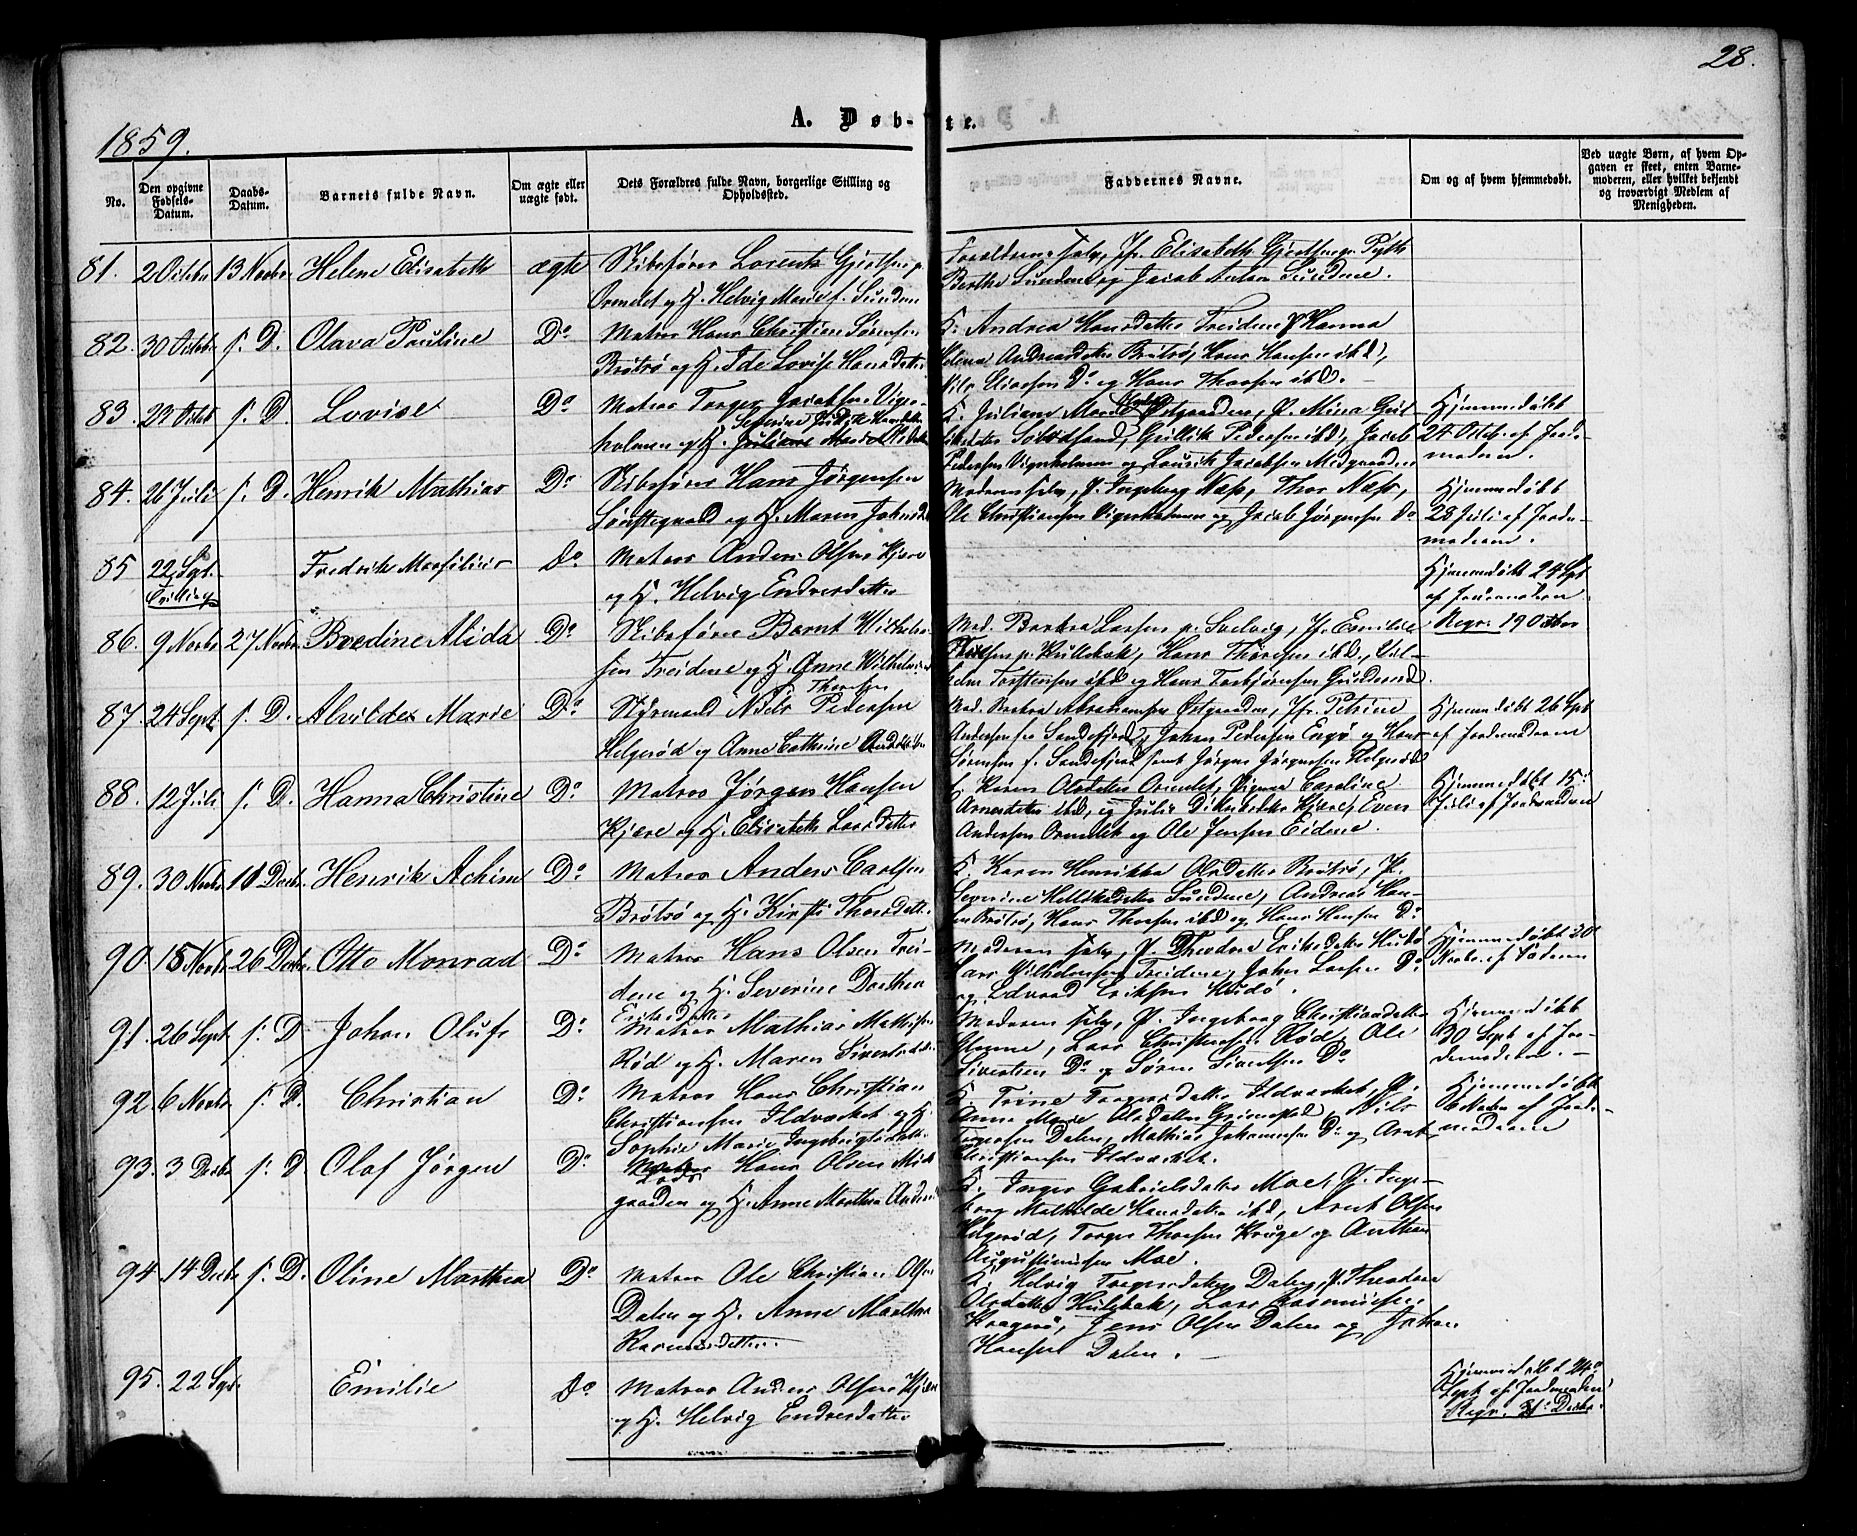 28.
A. Døbte.
1859.
No.
Den opgivne Fødsels-Datum.
Daabs-Datum.
Barnets fulde Navn.
Om ægte eller uægte født.
Dets Forældres fulde Navn, borgerlige Stilling og Opholdssted.
Faddernes Navne.
Om og af hvem hjemmedøbt.
Ved uægte Børn, af hvem Opgaven er skeet, enten Barnemoderen, eller hvilket bekjendt og troværdigt Medlem af Menigheden.
81. 2 Octbr 13 Novbr Helene Elisabeth ægte Skibsfører Lorents Gjertsen
Ormelet og H. Helvig Marie f. Sundene
Forældrene selv, Jfr. Elisabeth Gjertsen
Berthe Sundene og Jacob Anton Sundene.
82. 30 Octbr s. D. Olava Pauline Do Matros Hans Christian Sørensen
Brøtsø og H. Ide Lovise Hansdatter
K. Andrea Hansdatter Treidene P. Hanna
Helene Andreasdatter Brøtsø, Hans Hansen ibd,
Nils Eliassen Do og Hans Thorsen ibd.
83. s. D. Lovise Do Matros Torger Jacobsen
holmen og H.
K. Juliane Marie Østgaarden, P. Mina
Gullik Pedersen ibd, Jacob
Pedersen Vigerholmen og Jacobsen Midgaarden
Hjemmedøbt
24 Octb. af Jorde-
moderen.
84. 26 Juli s. D. Henrik Mathias Do Skibsfører Hans Jørgensen
og H. Maren
Moderen selv, P. Ingeborg Næs, Thor Næss,
Ole Christiansen Vigerholmen og Jacob Jørgensen Do
Hjemmedøbt
28 Juli af Jorde-
moderen.
85 22 Sept. Fredrik Do Matros Anders Olsen Kjære
Tvilling og H. Helvig Endresdatter
Hjemmedøbt 24 Sept
af Jordemoderen
86. 9 Novbr 27 Novbr. Bredine Alida Do Skibsfører Bernt Wilhelm-
sen Treidene og H. Anne Wilhelmine
Thorsen
Mad. Barbra Larsen p. Svelvig, Jfr. Emilie
p. Hullebak, Hans Thorsen ibd., Vil-
helm Torstensen ibd og Hans Torbjørnsen
Regr. 19 Octbr
87. 24 Sept s. D. Alvilde Marie Do Styrmand Niels Pedersen
Helgerød og Anne Cathrine
Mad. Barbra Abrahamsen Østgaarden, Jfr. Petrine
Andersen fra Sandefjord, Johan Pedersen Engø og Hans
Sørensen f. Sandefjord samt Jørgen Jørgensen Helgerød
Hjemmedøbt 26 Sept
af Jordemoderen
88. 12 Juli s. D. Hanna Christine Do Matros Jørgen Hansen
Kjære og H. Elisabeth Larsdatter
K. Karen Olsdatter Ormelet, Pigerne Caroline
ibd, og Julie Kjære, Even
Andersen Ormelet og Ole Jensen Eidene.
Hjemmedøbt 15
Juli af Jordmoderen
89. 30 Novbr 11 Decbr. Henrik Achim Do Matros Anders Carlsen
Brøtsø og H. Kirsti Thorsdatter
K. Karen Henrikka Olsdatter Brøtsø, P.
Severine Sundene, Andreas Han-
sen Brøtsø, Hans Thorsen ibd og Hans Hansen Do
90. 15 Novbr 26 Decbr Otto Monrad Do Matros Hans Olsen Trei-
dene og H. Severine Dorthea
Eriksdatter
Moderen selv, P. Theodora Eriksdatter Hudø
Lars Wilhelmsen Treidene, Johan Larsen Do
og Edvard Eriksen Hudø.
Hjemmedøbt 20
Novbr. af
91. 26 Sept s. D Johan Oluf Do Matros Mathias Mathisen
Rød og H. Maren Sivertsdatter
Moderen selv, P. Ingeborg Christiansdatter
Lars Christensen Rød, Ole
Sivertsen Do og Søren Sivertsen Do
Hjemmedøbt
30 Sept af Jor-
demoderen.
92. 6 Novbr s. D. Christian Do Matros Hans Christian
Christiansen Ildværket og H.
Sophie Marie Ingebrigtsdatter
K. Trine Torgersdatter Ildværket, P.
Anne Marie Olsdatter Grimestad, Nils
Torgersen Dalen, Mathias Johannesen Do og Arnt
Christiansen Ildværket.
Hjemmedøbt
6 Novbr af Jorde-
moderen
93. 3 Decbr s. D Olaf Jørgen Do Lods Hans Olsen Mid-
gaarden og H. Anne Marthea
K. Inger Gabrielsdatter Moe, P. Inge-
borg Mathilde Hansdatter ibd, Arnt Olsen
Helgerød, Torger Thorsen Kruge og Anthon
Augustinusen Moe.
94. 14 Decbr s. D. Oline Marthea Do Matros Ole Christian Olsen
Dalen og H. Anne Marthea
Rasmusdatter.
K. Helvig Torgersdatter Dalen, P. Theodora
Olsdatter Hulebak, Lars Rasmussen
Kragerø, Jens Olsen Dalen og Johan
Hansen Dalen.
95. 22 Sept. Emilie Do Matros Anders Olsen Kjære
og H. Helvig Endresdatter
Hjemmedøbt 24
Sept af Jordmoderen
Regr. 31 Decbr.